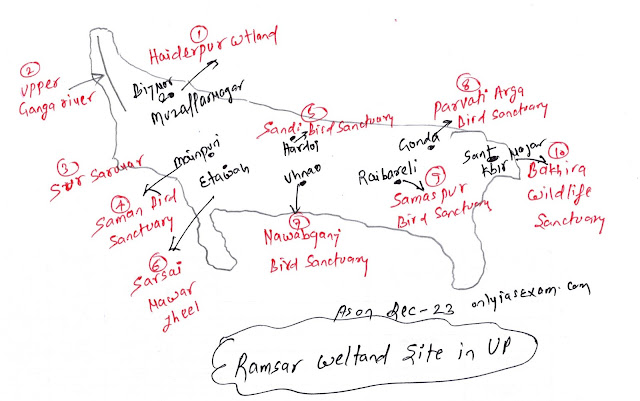 1
Haiderpur wtland
2
Upper
Ganga river
Bijnor
Muzaffarnagar
8
Parvati Arga
Bird Sanctuary
5
Sandi Bird Sanctuary
Hardoi
Gonda
3
Sur Sarovar
Mainpuri
Etawah
Unnao
Raibareli
Sant
Kbir Nagar
10
Bakhira
Wildlife
Sanctuary
4
Saman Bird
Sanctuary
9
Samaspur
Bird Sanctuary
7
Nawabganj
Bird Sanctuary
6
Sarsai
Nawar
Jheel
As on Dec-23 onlyiasExam.com
Ramsar Wetland Site in UP